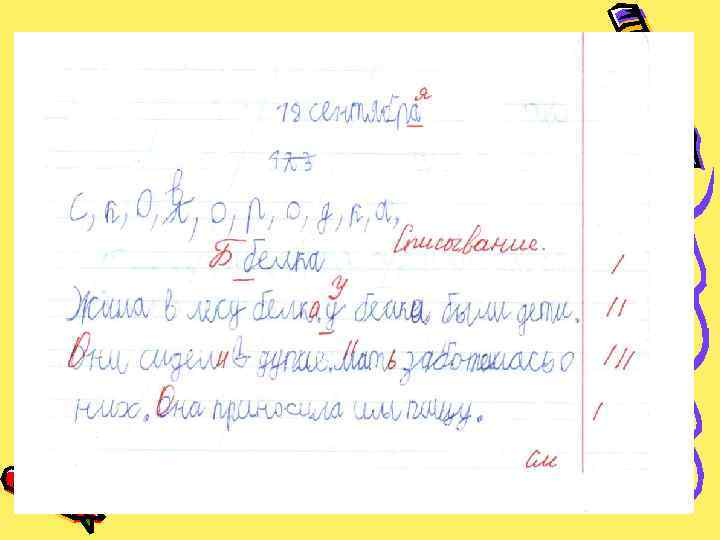 18 сентября
1 2 3
С, к, О, в, о, р, о, д, к, а,
Списывание.
Б белка I
Жила в лесу белка. У белки были дети. II
Они сидели в дупле. Мать заботилась о III
них. Она приносила им пищу. I
См